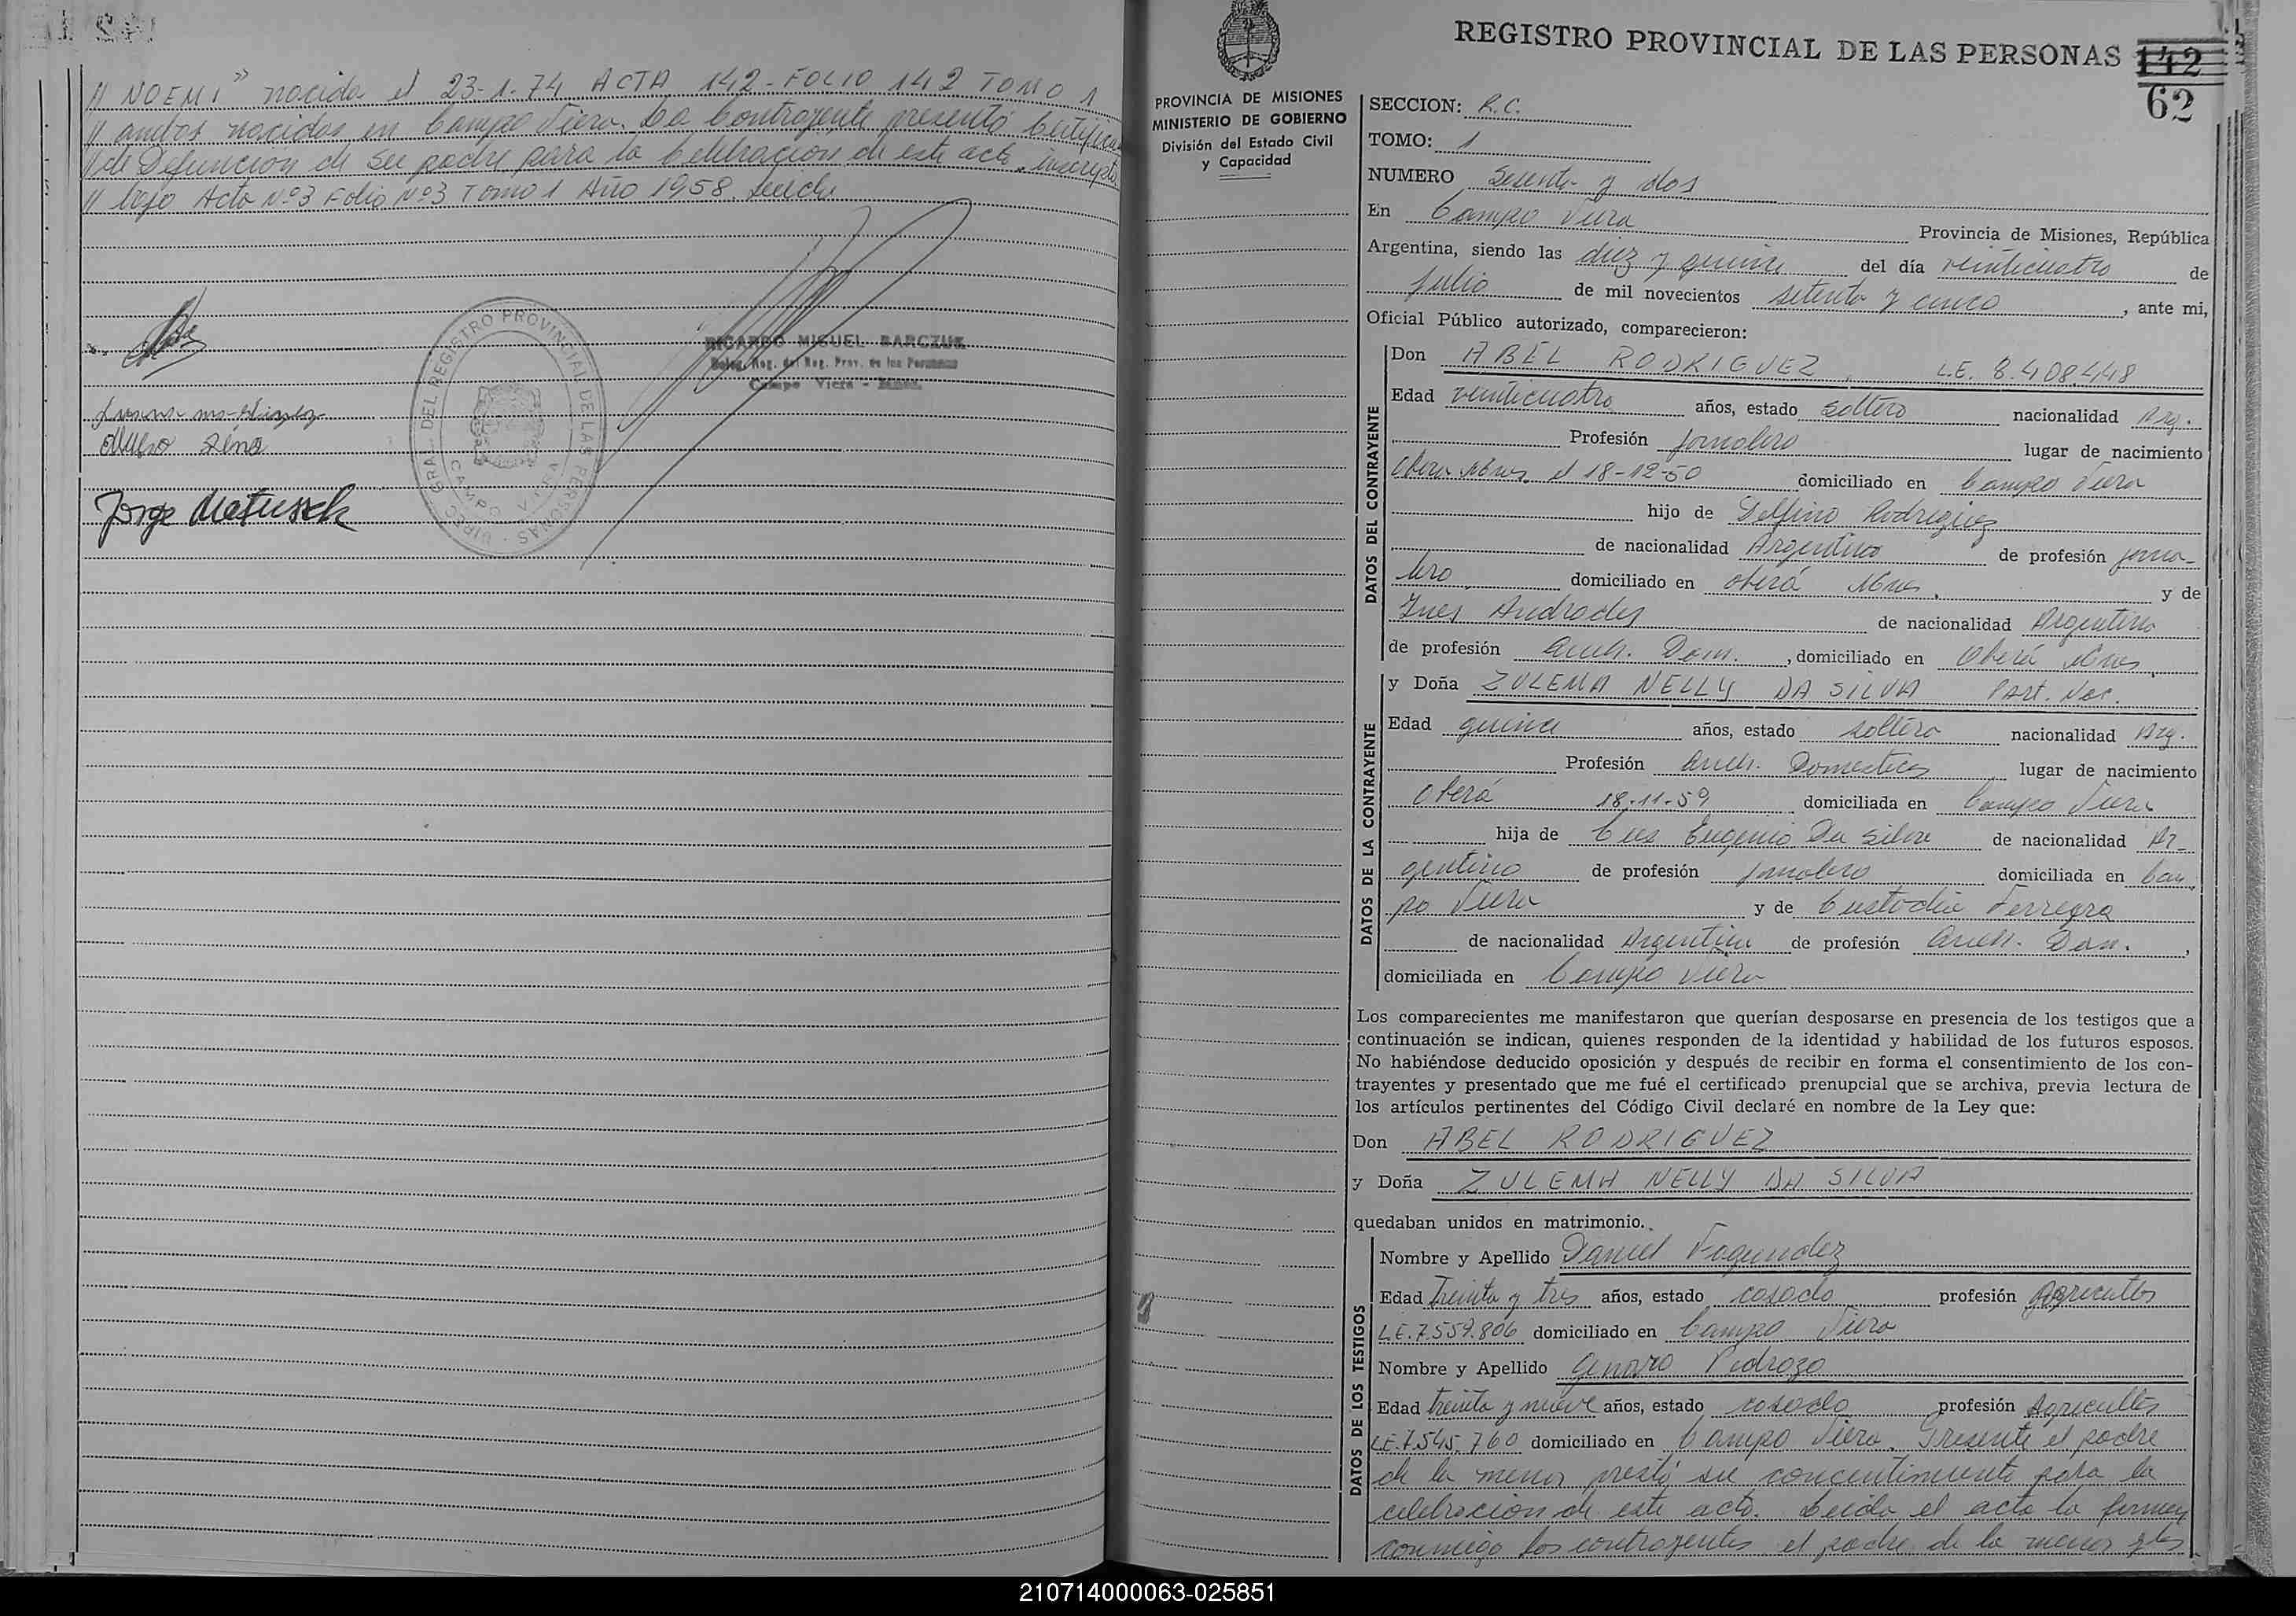 // NOEMI" nacida el 23-1-74 ACTA 142-FOLIO 142 TOMO 1
// ambos nacidos en Campo Viera. La Contrayente presentó Certifica
// de Defunción de su padre para la Celebración de este acto, inscripto
// bajo Acta Nº3 Folio Nº3 Tomo 1 Año 1958.
RICARDO MIGUEL BARCZUK
Deleg. Reg. del Reg. Prov. de las Personas
Campo Viera - Mnes.
DIREC. GRAL. DEL REGISTRO PROVINCIAL DE LAS PERSONAS
CAMPO VIERA
Jorge Matusek
REGISTRO PROVINCIAL DE LAS PERSONAS
142
62
PROVINCIA DE MISIONES
MINISTERIO DE GOBIERNO
División del Estado Civil
y Capacidad
SECCION: R.C.
TOMO: 1
NUMERO Sesenta y dos
En Campo Viera Provincia de Misiones, República
Argentina, siendo las diez y quince del día veinticuatro de
julio de mil novecientos setenta y cinco, ante mi,
Oficial Público autorizado, comparecieron:
DATOS DEL CONTRAYENTE
Don ABEL RODRIGUEZ, L.E. 8.408.448
Edad veinticuatro años, estado soltero nacionalidad Arg.
Profesión jornalero lugar de nacimiento
Oberá Mnes. el 18-12-50 domiciliado en Campo Viera
hijo de Delfino Rodriguez
de nacionalidad Argentino de profesión jorna-
lero domiciliado en Oberá Mnes. y de
Inés Andrades de nacionalidad Argentina
de profesión Queh. Dom., domiciliado en Oberá Mnes.
DATOS DE LA CONTRAYENTE
y Doña ZULEMA NELLY DA SILVA Part. Nac.
Edad quince años, estado soltera nacionalidad Arg.
Profesión Queh. Domesticos lugar de nacimiento
Oberá 18-11-59 domiciliada en Campo Viera
hija de Eugenio Da Silva de nacionalidad Ar-
gentino de profesión jornalero domiciliada en Cam
po Viera y de Custodia Ferreyra
de nacionalidad Argentina de profesión Queh. Dom.,
domiciliada en Campo Viera
Los comparecientes me manifestaron que querían desposarse en presencia de los testigos que a
continuación se indican, quienes responden de la identidad y habilidad de los futuros esposos.
No habiéndose deducido oposición y después de recibir en forma el consentimiento de los con-
trayentes y presentado que me fué el certificado prenupcial que se archiva, previa lectura de
los artículos pertinentes del Código Civil declaré en nombre de la Ley que:
Don ABEL RODRIGUEZ
y Doña ZULEMA NELLY DA SILVA
quedaban unidos en matrimonio.
DATOS DE LOS TESTIGOS
Nombre y Apellido Daniel Fagundez
Edad Treinta y tres años, estado casado profesión Agricultor
L.E. 7.559.806 domiciliado en Campo Viera
Nombre y Apellido Genaro Pedrozo
Edad treinta y nueve años, estado casado profesión Agricultor
L.E. 7.545.760 domiciliado en Campo Viera. Presente el padre
de la menor prestó su concentimiento para la
celebración de este acto. Leida el acta la firman
conmigo los contrayentes el padre de la menor y los
210714000063-025851